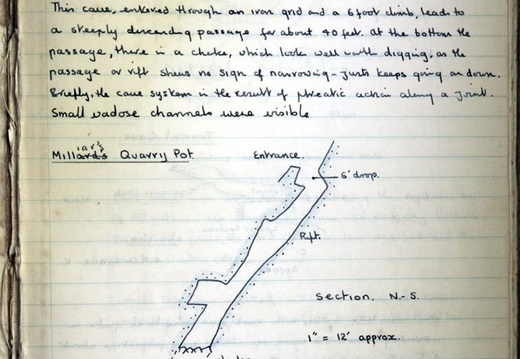 This cave, entered through an iron grid and a 6 foot climb, leads to
a steeply descending passage for about 40 feet. At the bottom the
passage, there is a choke, which look well worth digging, as the
passage or rift shews no sign of narrowing - justs keeps going on down.
Briefly, the cave system is the result of phreatic action along a joint.
Small vadose channels were visible
iar's
Millards Quarry Pot.
Entrance.
6' drop.
Rift.
Section. N.-S.
1" = 12' approx.